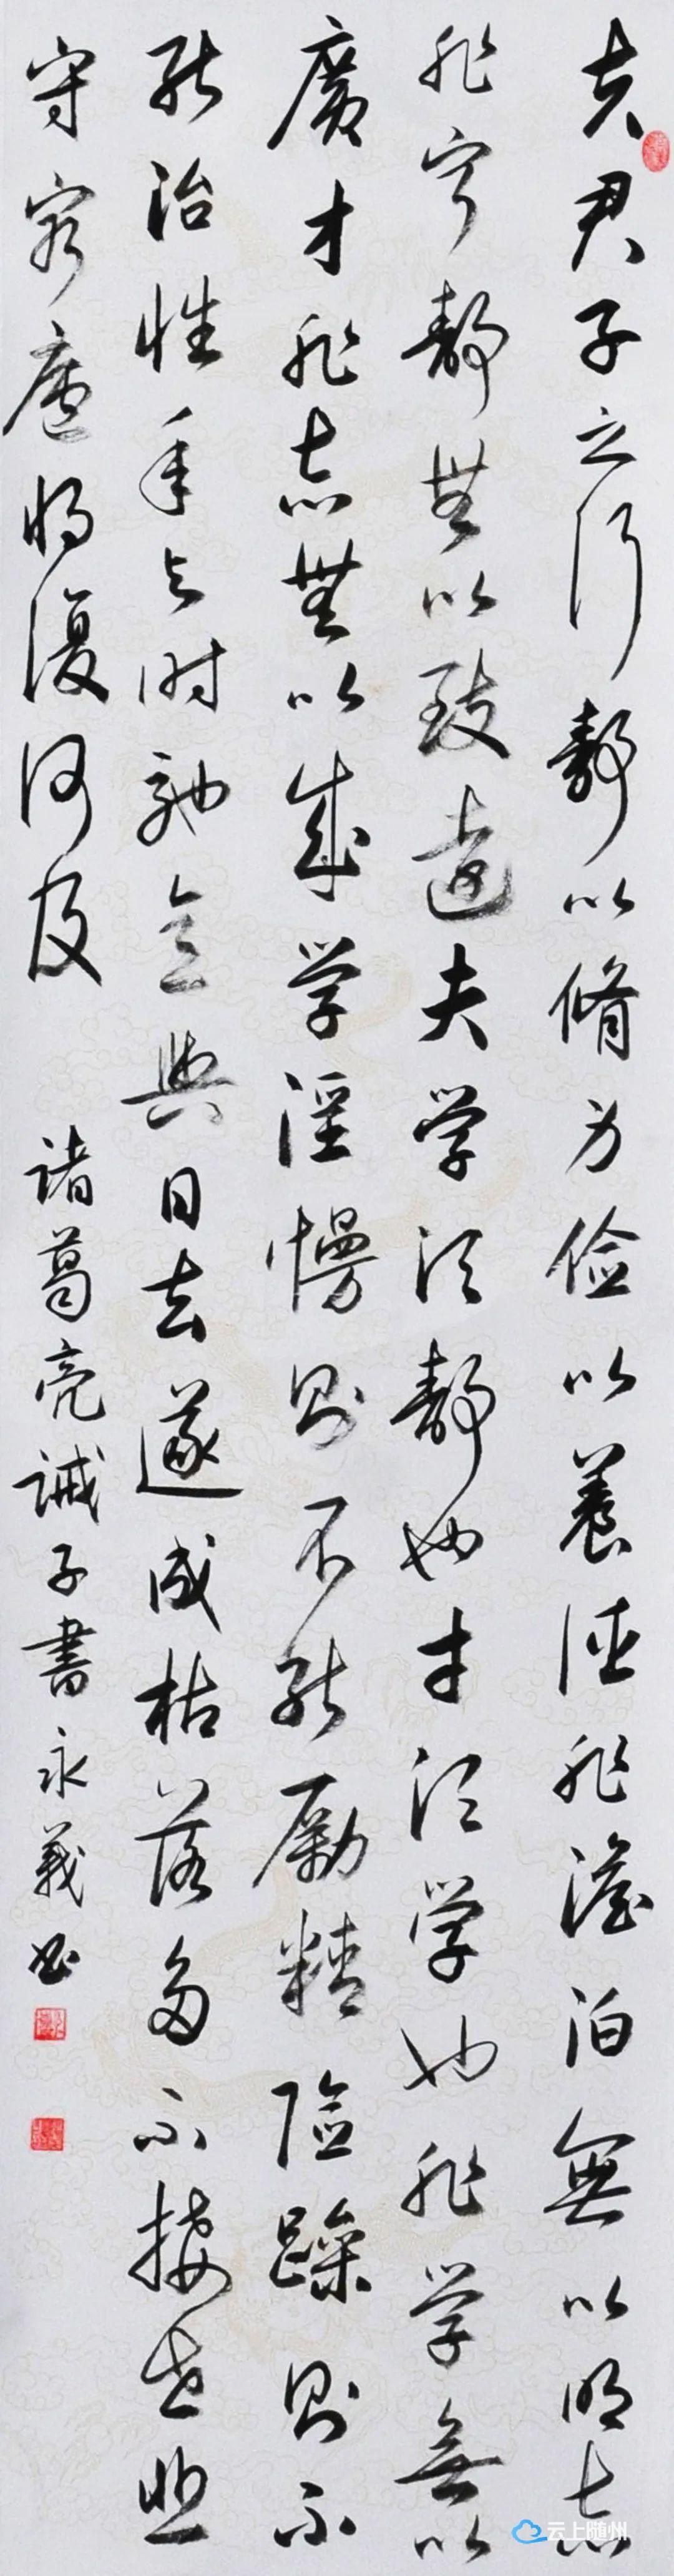 夫君子之行静以脩身俭以養德非澹泊無以明志
非宁静無以致遠夫学须静也才须学也非学無以
廣才非志無以成学淫慢则不能勵精险躁则不
能治性年与时馳意與日去遂成枯落多不接世悲
守窮廬将復何及
诸葛亮誡子書永義书
云上随州